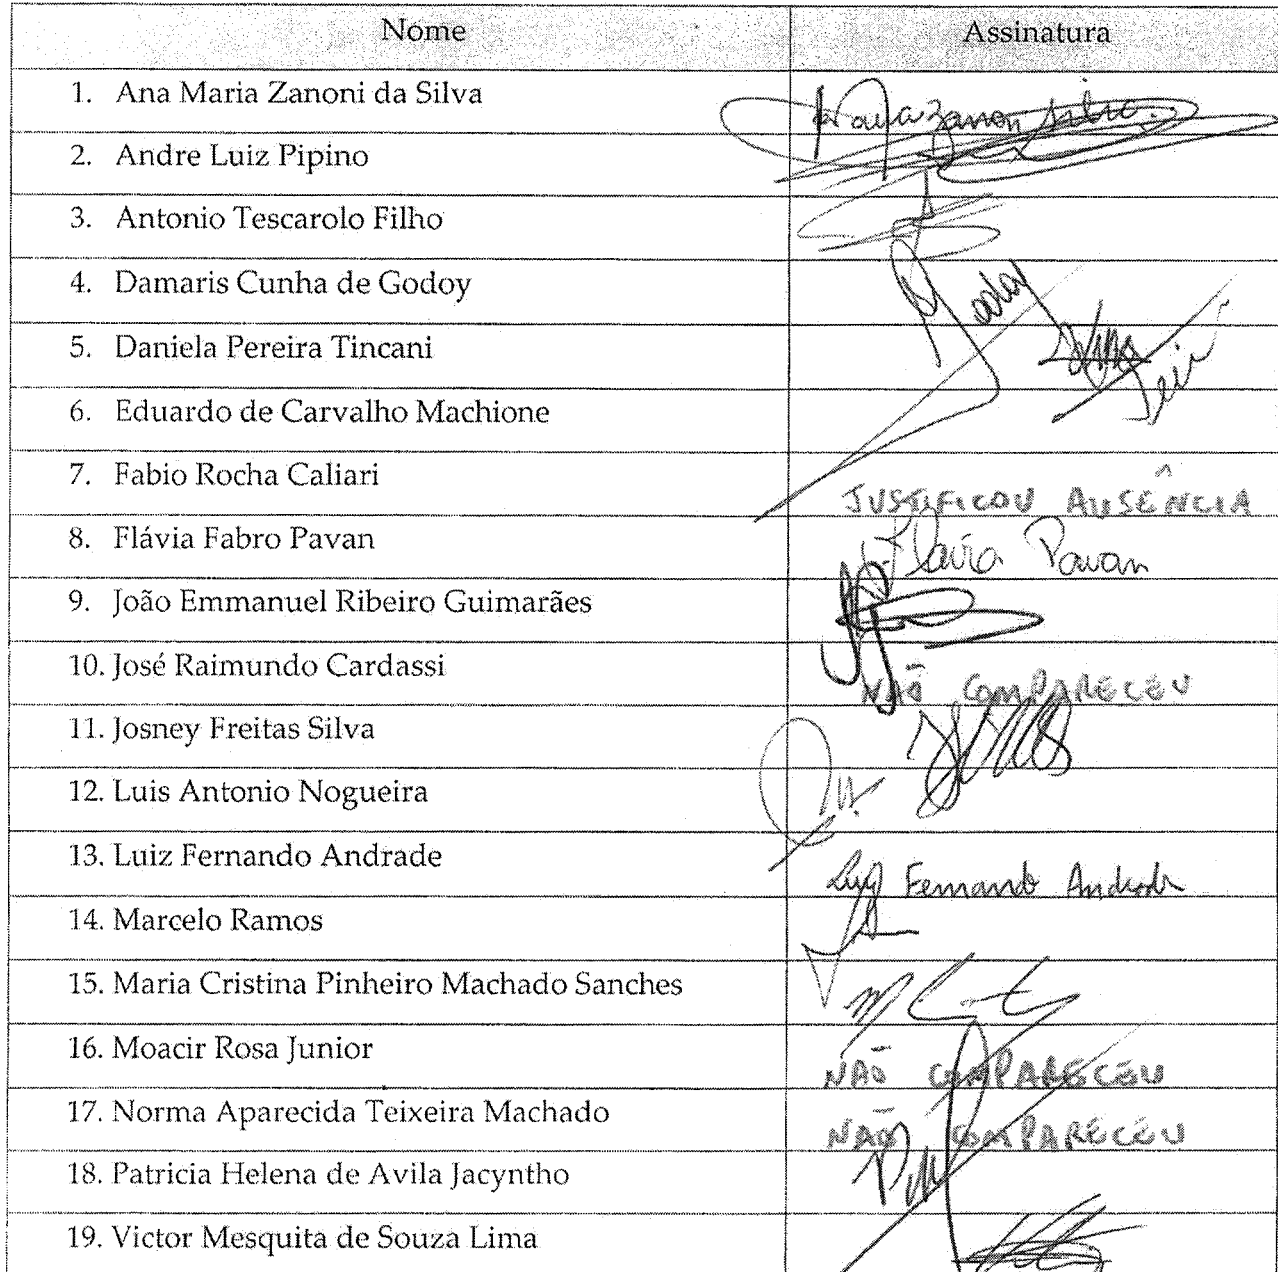 Nome Assinatura
1. Ana Maria Zanoni da Silva
2. Andre Luiz Pipino
3. Antonio Tescarolo Filho
4. Damaris Cunha de Godoy
5. Daniela Pereira Tincani
6. Eduardo de Carvalho Machione
7. Fabio Rocha Caliari JUSTIFICOU AUSÊNCIA
8. Flávia Fabro Pavan Flavia Pavan
9. João Emmanuel Ribeiro Guimarães
10. José Raimundo Cardassi NÃO COMPARECEU
11. Josney Freitas Silva
12. Luis Antonio Nogueira
13. Luiz Fernando Andrade Luiz Fernando Andrade
14. Marcelo Ramos
15. Maria Cristina Pinheiro Machado Sanches
16. Moacir Rosa Junior NÃO COMPARECEU
17. Norma Aparecida Teixeira Machado NÃO COMPARECEU
18. Patricia Helena de Avila Jacyntho
19. Victor Mesquita de Souza Lima